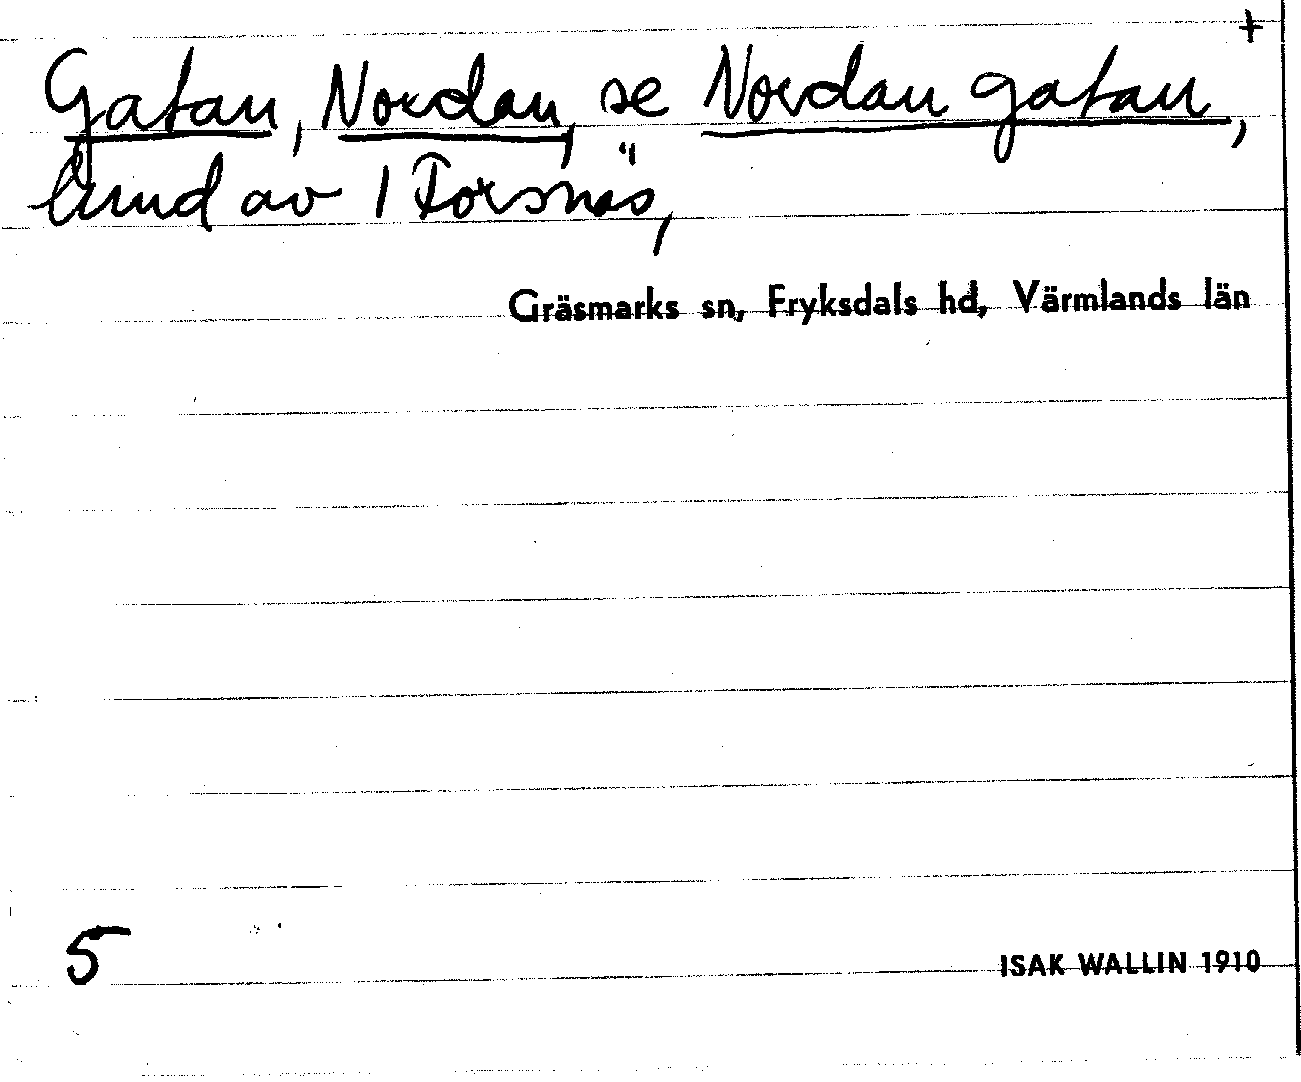 +
Gatan, Nordan, se Nordan gatan,
lund av 1 Forsnäs,
Gräsmarks sn, Fryksdals hd, Värmlands län
5
ISAK WALLIN 1910